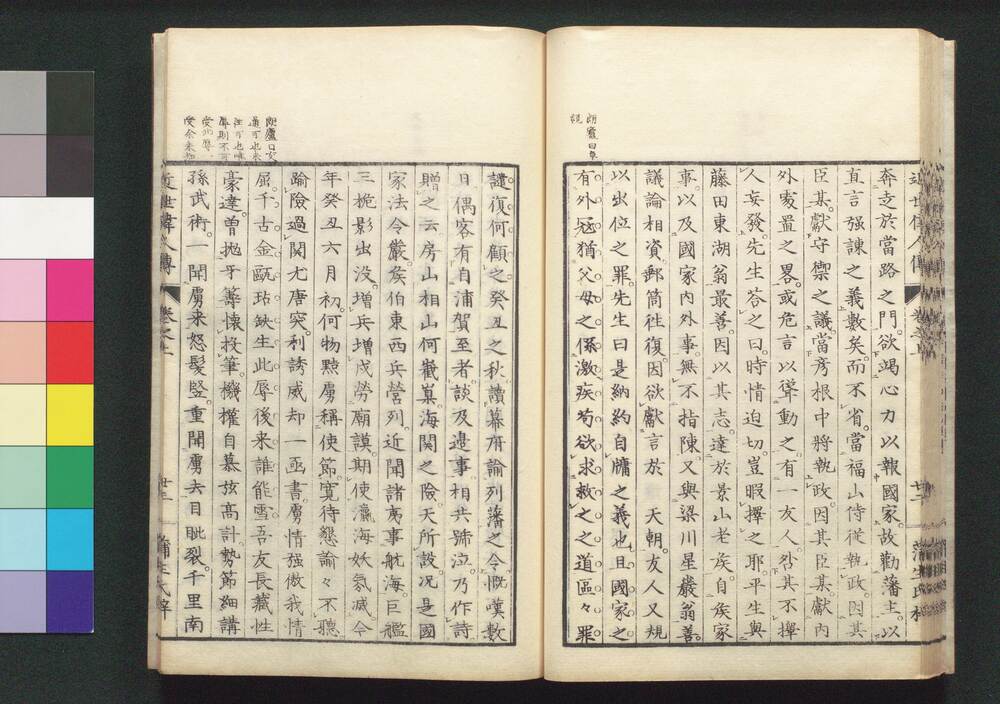 朗廬曰卓
見
奔走於當路之門。欲竭心力以報國家。故勸藩主。以
直言强諫之義數矣。而不省。當福山侍從執政。因其
臣某。獻守禦之議。當彦根中將執政。因其臣某。獻内
外處置之畧。或危言以聳動之。有一友人。咎其不擇
人妄發。先生答之曰。時情迫切。豈暇擇之耶。平生與
藤田東湖翁最善。因以其志。達於景山老矦。自矦家
事。以及國家内外事。無不指陳。又與梁川星巖翁善。
議論相資。郵筒徃復。因欲獻言於 天朝。友人又規
以出位之罪。先生曰。是納約自牖之義也。且國家之
有外冦。猶父母之係激疾。苟欲求救之之道。區々罪
譴。復何顧之。癸丑之秋。讀幕府諭列藩之令。慨嘆數
日。偶客有自浦賀至者。談及邊事。相共號泣。乃作詩
贈之云。房山相山何巀嶪。海関之險天所設。况是國
家法令嚴。矦伯東西兵營列。近聞諸夷事航海。巨艦
三桅影出没。增兵增戍勞廟謨。期使瀛海妖氛滅。今
年癸丑六月初。何物黠虜稱使節。寛待懇諭々不聽
踰險過関尤唐突。利誘威却一函書。虜情强傲我情
屈。千古金甌玷缺生。此辱後来誰能雪。吾友長藏性
豪達。曽抛牙籌懐投筆。機權自慕弦高計。勢節細講
孫武術。一聞虜来怒髮竪。重聞虜去目眦裂。千里南
近世偉人傳 卷之上 廿二 蒲生氏梓